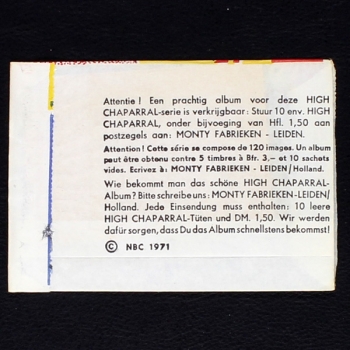 Attentie! Een prachtig album voor deze HIGH
CHAPARRAL-serie is verkrijgbaar: Stuur 10 env. HIGH
CHAPARRAL, onder bijvoeging van Hfl. 1,50 aan
postzegels aan: MONTY FABRIEKEN - LEIDEN.
Attention! Cette série se compose de 120 images. Un album
peut être obtenu contre 5 timbres à Bfr. 3,— et 10 sachets
vides. Ecrivez à: MONTY FABRIEKEN - LEIDEN/Holland.
Wie bekommt man das schöne HIGH CHAPARRAL-
Album? Bitte schreibe uns: MONTY FABRIEKEN-LEIDEN/
Holland. Jede Einsendung muss enthalten: 10 leere
HIGH CHAPARRAL-Tüten und DM. 1,50. Wir werden
dafür sorgen, dass Du das Album schnellstens bekommst!
© NBC 1971